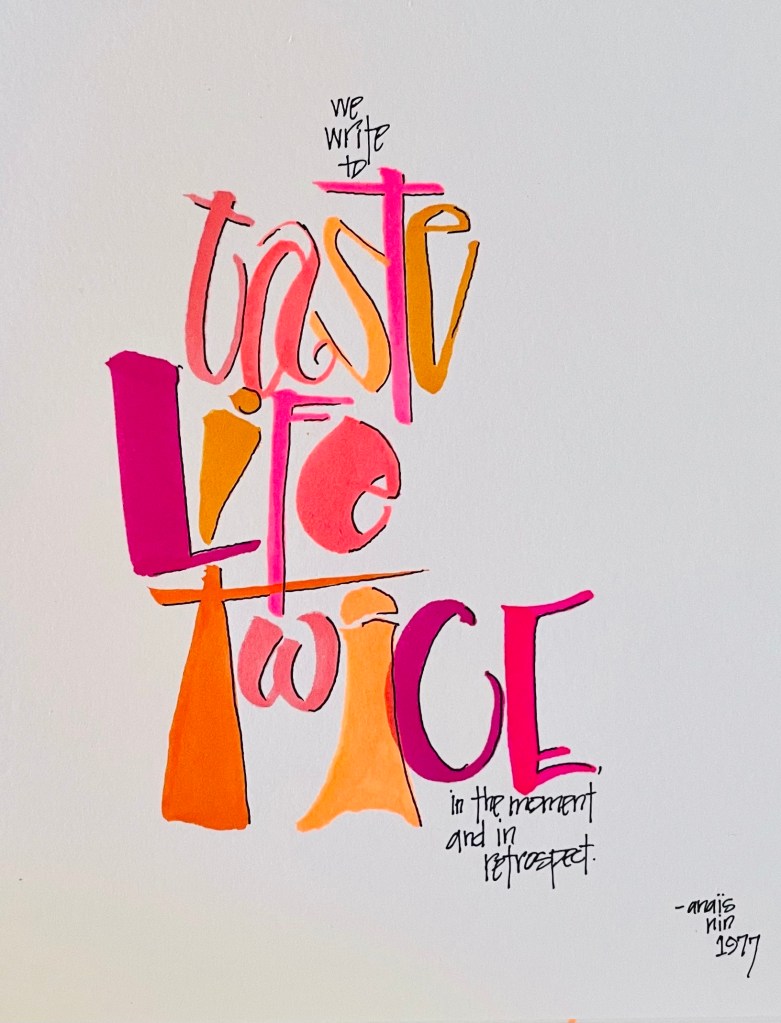 we
write
to
taste
Life
TwiCE,
in the moment
and in
retrospect.
-anaïs
nin
1977